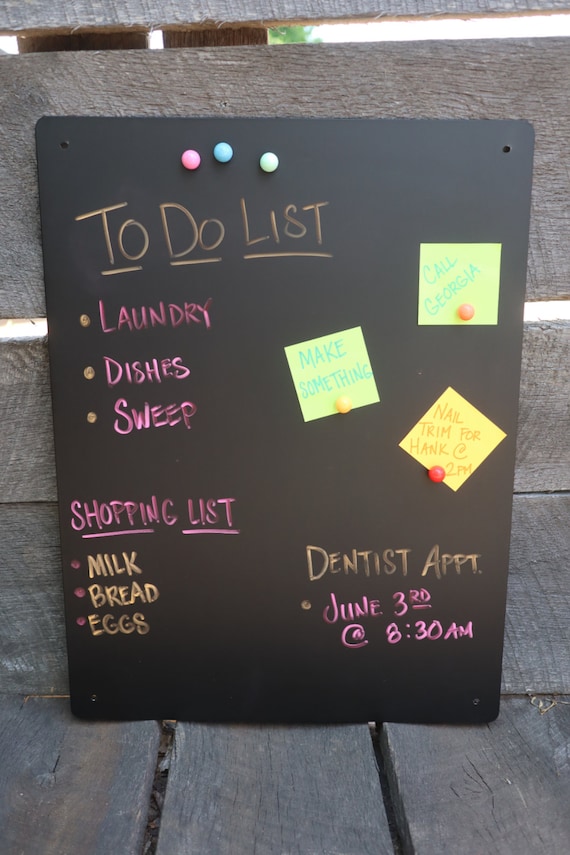 TO DO LIST
• LAUNDRY
• DISHES
• SWEEP
CALL
GEORGIA
MAKE
SOMETHING
NAIL
TRIM FOR
HANK @
2PM
SHOPPING LIST
• MILK
• BREAD
• EGGS
DENTIST APPT.
• JUNE 3RD
@ 8:30AM